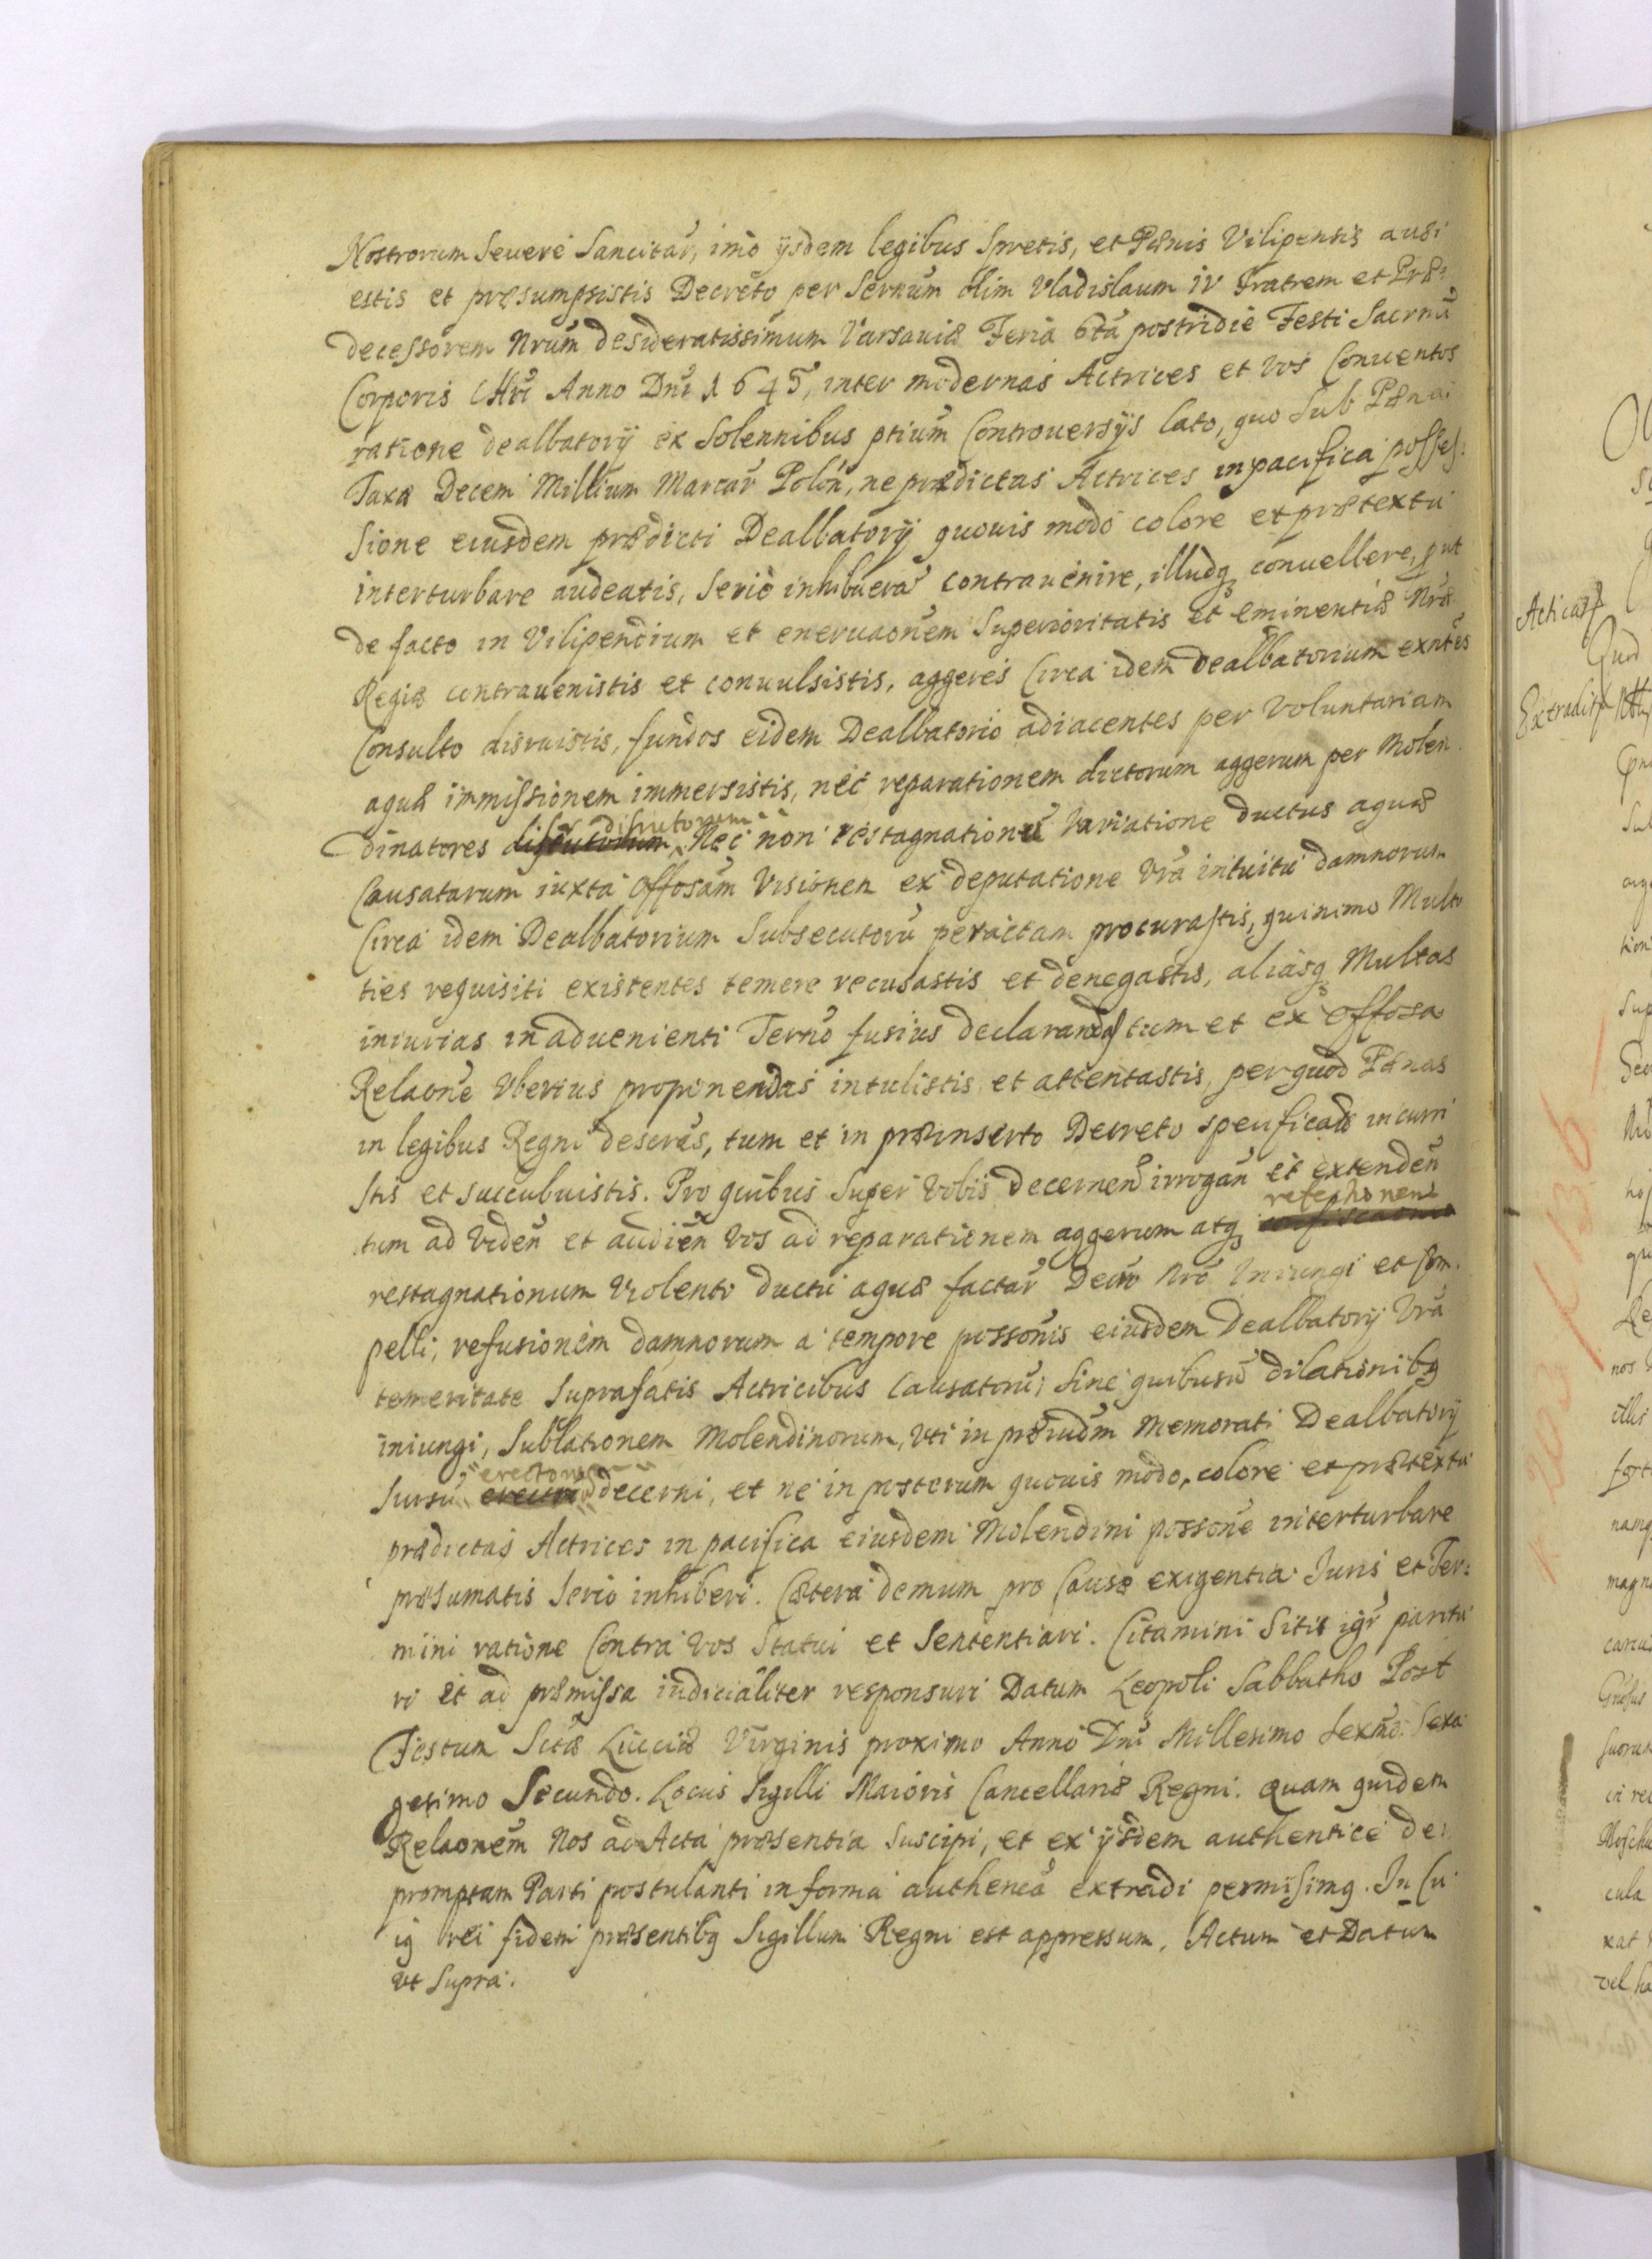 Nostrorum Seueré Sancitar, imò ijsdem legibus Spretis, et Pænis Vilipensis ausi
estis et præsumpsistis Decreto per Sernũm olim Vladislaum IV Fratrem et Præ:
decessorem Nrũm desideratissimum Varsauiæ Feria 6ta postridie Festi Sacrmi
Corporis Chri Anno Dni 1645, inter modernas Actrices et vos Conuentos
ratione dealbatorij ex Solennibus ptium Controuersijs lato, quo Sub Pænai
Taxa Decem Millium Marcar Polon, ne prædictas Actrices in pacifica posses:
sione eiusdem prædicti Dealbatorij quouis modo colore et prætextu
interturbare audeatis, serio inhibuerá contrauenire, illudq conuellere, put
de facto in Vilipendium et eneruaonem Superioritatis et eminentiæ Nræ
Regiæ contrauenistis et conuulsistis, aggeres Circa idem dealbatorium exntes
Consulto disruistis, fundos eidem Dealbatorio adiacentes per Voluntariam
aquæ immissionem immersistis, nec reparationem dictorum aggerum per Molen
dinatores disrutorum Nec non restagnationũ Variatione ductus aquæ
Causatarum iuxta Offosam Visionem ex deputatione Vra intuitu damnorum
Circa idem Dealbatorium Subsecutorũ peractam procurastis, quinimo Multo
ties requisiti existentes temere recusastis et denegastis, aliasq Multas
iniurias in aduenienti Terno fusius declarandas tum et ex Offosa
Relaone Vberius proponendas intulistis et attentastis, per quod Pænas
in legibus Regni descras, tum et in præinserto Decreto specificatas incurri
stis et succubuistis. Pro quibus Super Vobis decernen irrogan et extenden
tum ad viden et audien Vos ad reparationem aggerum atq
restagnationum Violento ductu aquæ factar Decro Nro Iniungi et Com
pelli, refusionem damnorum a tempore possonis eiusdem Dealbatorij Vra
temeritate Suprafatis Actricibus Causatorũ, Sine quibusuis dilationibq
iniungi, Sublationem Molendinorum, Vti in præiudm Memorati Dealbatorij
Sursũ erectorũ decerni, et ne in posterum quouis modo, colore et prætextu
prædictas Actrices in pacifica eiusdem Molendini possone interturbare
præsumatis Serio inhiberi. Cætera demum pro Causæ exigentia Juris et Ter:
mini ratione Contra Vos Statui et Sententiari. Citamini Sitis igr paritu
ri et ad præmissa iudicialiter responsuri Datum Leopoli Sabbatho Post
Festum Sctæ Luciæ Virginis proximo Anno Dni Millesimo Sexmo Sexa
gesimo Secundo. Locus Sigilli Maioris Cancellariæ Regni. Quam quidem
Relaonem Nos ad Acta præsentia Suscipi, et ex ijsdem authenticè de:
promptam Parti postulanti in forma authenca extradi permisimq. In Cu
iq rei fidem præsentibq Sigillum Regni est appressum. Actum et Datum
ut Supra.
Acticat
Extradit